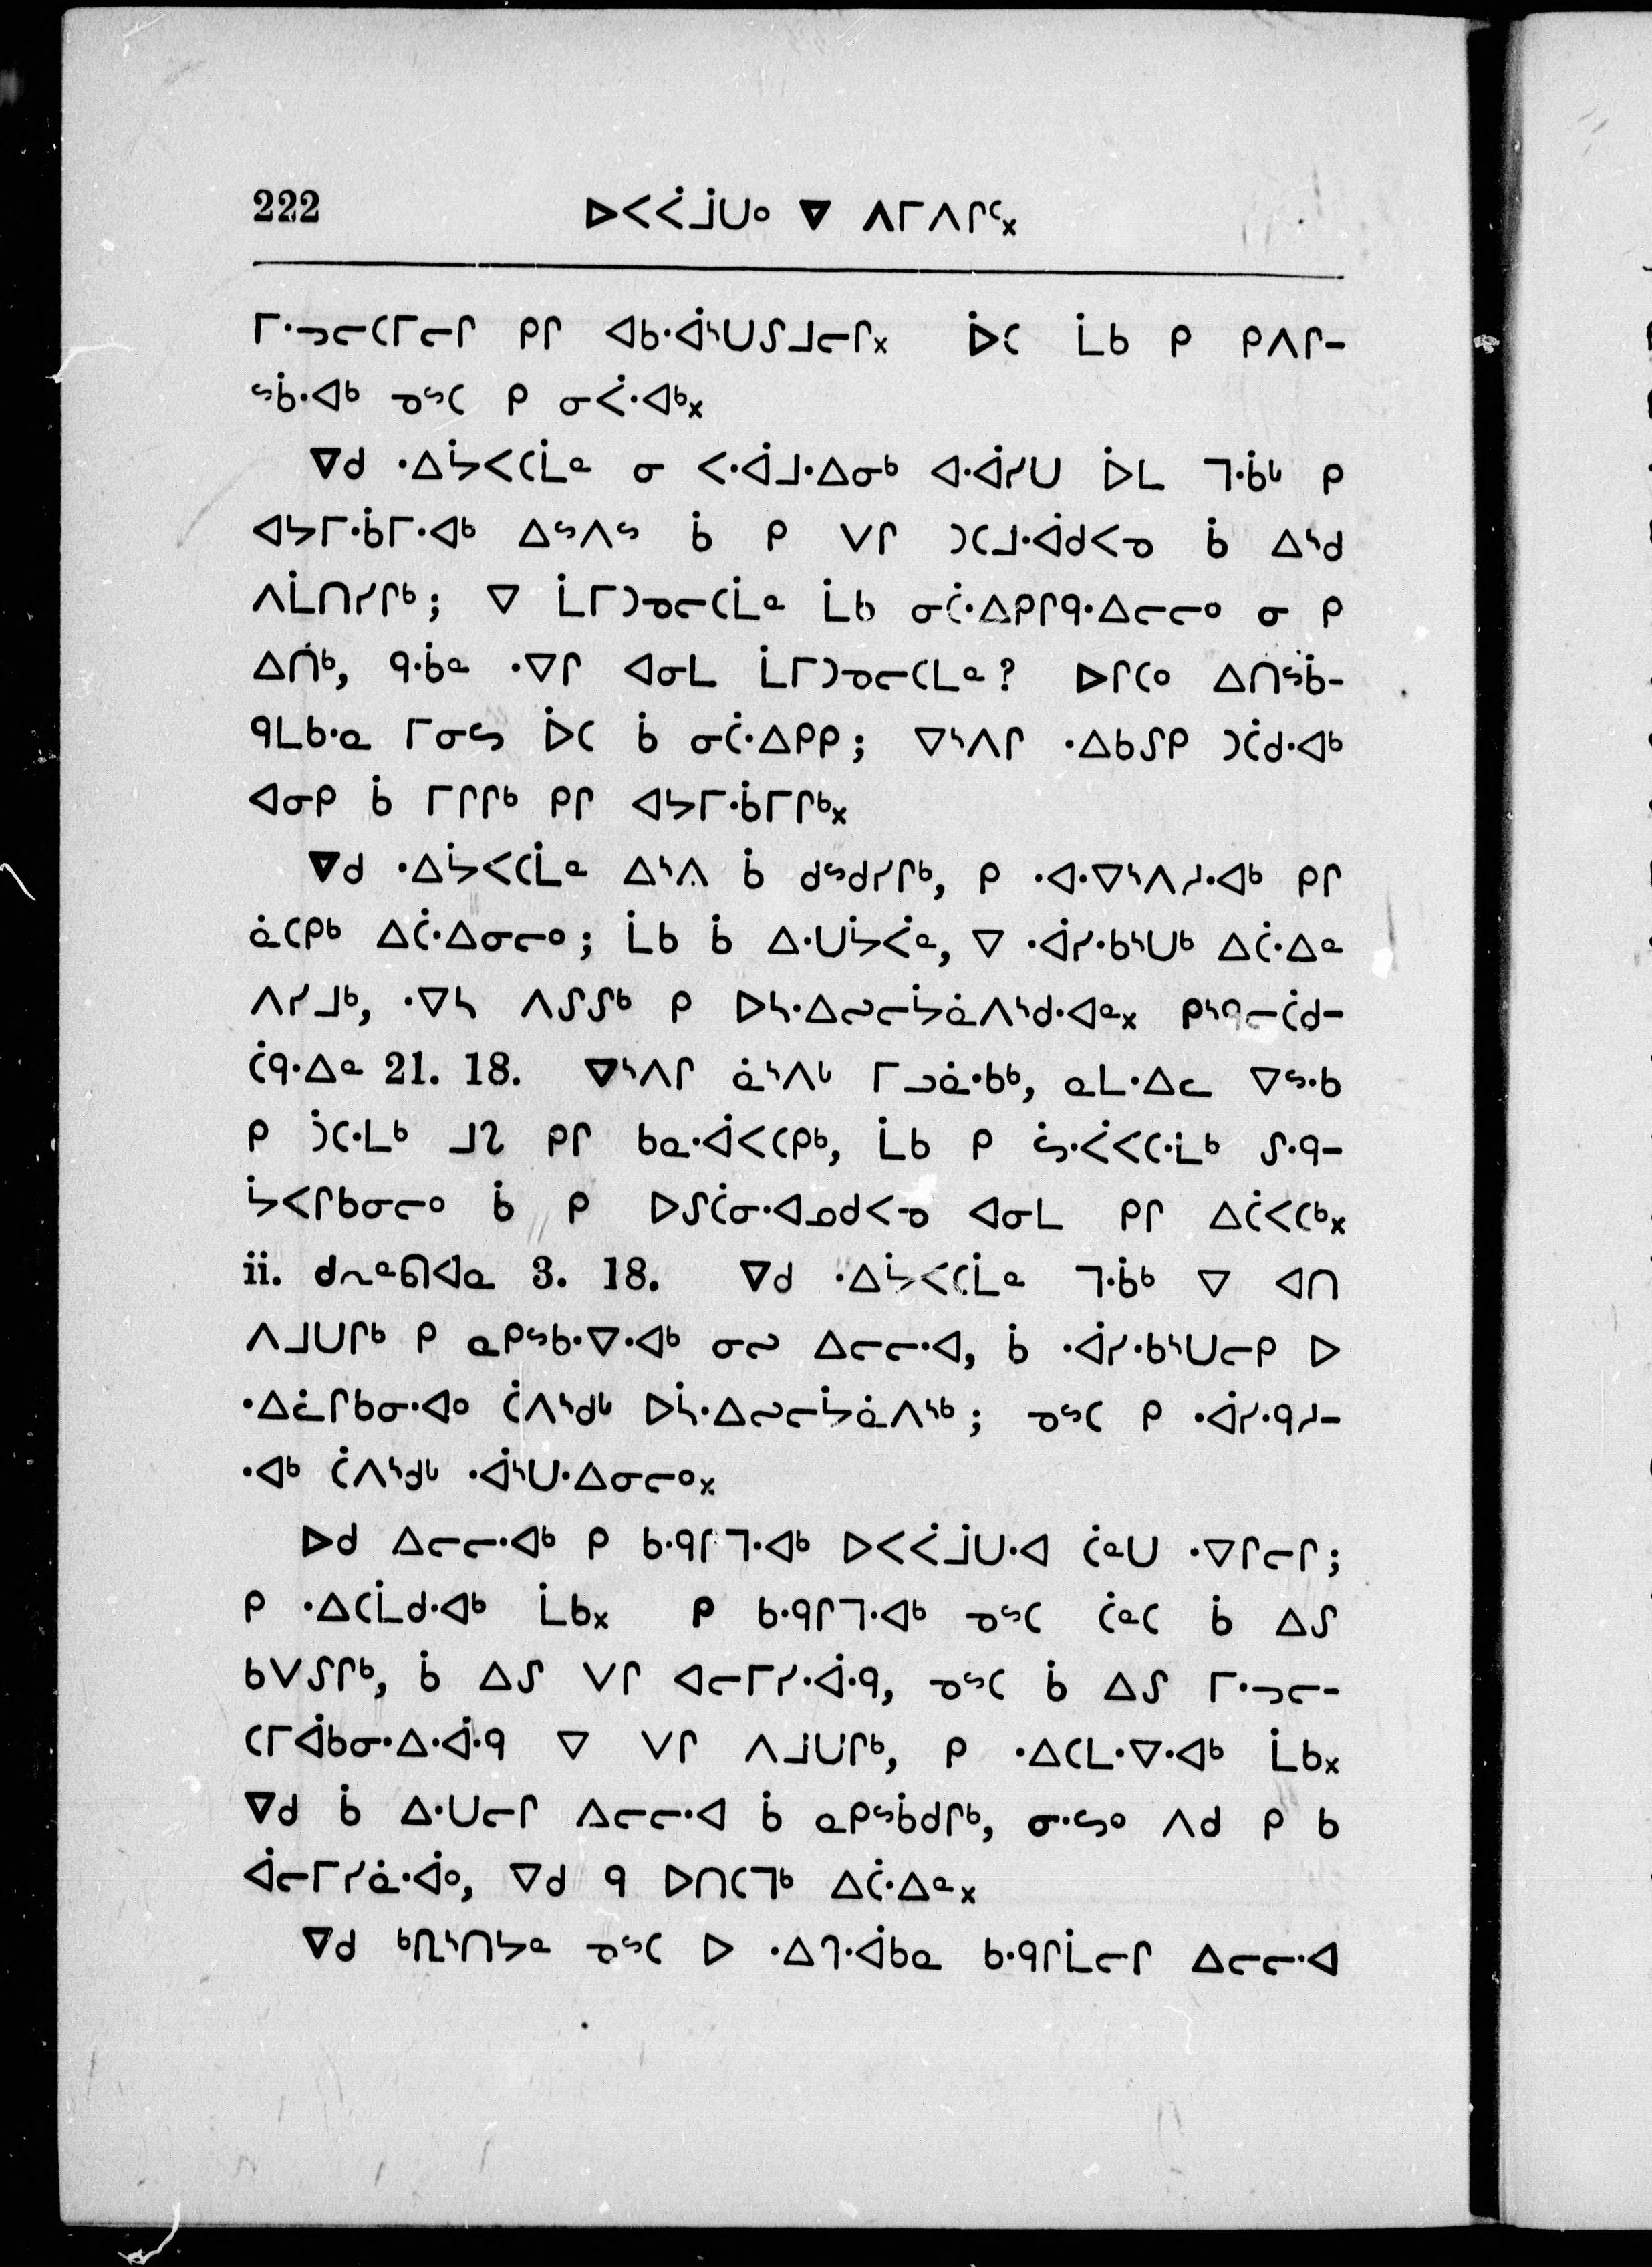 222 ᐅᐸᐹᒫᑌᐤ ᐁ ᐱᒥᐱᒋᑦ᙮
ᒥᐧᓓᓕᑕᒥᓕᒋ ᑭᒋ ᐊᑲᐧᐋᔅᑌᔑᒧᓕᒋ᙮ ᐆᑕ ᒫᑲ ᑭ ᑭᐱᒋ-
ᔥᑳᐧᐊᒃ ᓀᔥᑕ ᑭ ᓂᐹᐧᐊᒃ᙮
ᐁᑯ ᐧᐃᔮᐸᑕᒫᓐ ᓂ ᐸᐧᐋᒧᐧᐃᓂᒃ ᐊᐧᐋᓯᑌ ᐆᒪ ᒣᐧᑳᒡ ᑭ
ᐊᔭᒥᐧᑳᒥᐧᐊᒃ ᐃᔥᐱᔥ ᑳ ᑭ ᐯᒋ ᑐᑕᒧᐧᐋᑯᐸᓀ ᑳ ᐃᔅᑯ
ᐱᒫᑎᓯᒋᒃ; ᐁ ᒫᒥᑐᓀᓕᑕᒫᓐ ᒫᑲ ᓂᑖᐧᐃᑭᒋᑫᐧᐃᓕᓕᐤ ᓂ ᑭ
ᐃᑎᒃ, ᑫᐧᑳᓐ ᐧᐁᒋ ᐊᓂᒪ ᒫᒥᑐᓀᓕᑕᒪᓐ? ᐅᒋᑕᐤ ᐃᑎᔥᑳ-
ᑫᒪᑲᐧᓇ ᒥᓂᔕ ᐆᑕ ᑳ ᓂᑖᐧᐃᑭᑭ; ᐁᔅᐱᒋ ᐧᐃᑲᔑᑭ ᑐᑖᑯᐧᐊᒃ
ᐊᓂᑭ ᑳ ᒥᒋᒋᒃ ᑭᒋ ᐊᔭᒥᐧᑳᒥᒋᒃ᙮
ᐁᑯ ᐧᐃᔮᐸᑕᒫᓐ ᐃᔅᐱ ᑳ ᑯᔥᑯᓯᒋᒃ, ᑭ ᐧᐊᐧᐁᔅᐱᓱᐧᐊᒃ ᑭᒋ
ᓈᑕᑭᒃ ᐃᑖᐧᐃᓂᓕᐤ; ᒫᑲ ᑳ ᐃᐧᑌᔮᐹᓐ, ᐁ ᐧᐋᓯᐧᑲᔅᑌᒃ ᐃᑖᐧᐃᓐ
ᐱᓯᒧᒃ, ᐧᐁᓴ ᐱᔑᔑᒃ ᑭ ᐅᓴᐧᐃᔓᓕᔮᓈᐱᔅᑯᐧᐊᓐ᙮
ᑖᑫᐧᐃᓐ 21. 18. ᐁᔅᐱᒋ ᓈᔅᐱᒡ ᒥᓗᓈᐧᑲᒃ, ᓇᒪᐧᐃᓚ ᐁᔥᐧᑲ
ᑭ ᑑᑕᐧᒪᒃ ᒧᔩ ᑭᒋ ᑲᓇᐧᐋᐸᑕᑭᒃ, ᒫᑲ ᑭ ᔖᐧᐹᐸᑕᐧᒫᒃ ᔑᐧᑫ-
ᔮᐸᒋᑲᓂᓕᐤ ᑳ ᑭ ᐅᔑᑖᓂᐧᐊᓄᑯᐸᓀ ᐊᓂᒪ ᑭᒋ ᐃᑖᐸᑕᒃ᙮
ii. ᑯᓓᓐᕠᐊᓇ 3. 18. ᐁᑯ ᐧᐃᔮᐸᑕᒫᓐ ᒣᐧᑳᒃ ᐁ ᐊᑎ
ᐱᒧᑌᒋᒃ ᑭ ᓇᑭᔥᑲᐧᐁᐧᐊᒃ ᓂᔓ ᐃᓕᓕᐧᐊ, ᑳ ᐧᐋᓯᐧᑲᔅᑌᓕᑭ ᐅ
ᐧᐃᓛᒋᑲᓂᐧᐊᐤ ᑖᐱᔅᑯᒡ ᐅᓵᐧᐃᔓᓕᔮᓈᐱᔅᒃ; ᓀᔥᑕ ᑭ ᐧᐋᓯᐧᑫᓱ-
ᐧᐊᒃ ᑖᐱᔅᑯᒡ ᐧᐋᔅᑌᐧᐃᓂᓕᐤ᙮
ᐅᑯ ᐃᓕᓕᐧᐊᒃ ᑭ ᑲᐧᑫᒋᒣᐧᐊᒃ ᐅᐸᐹᒫᑌᐧᐊ ᑖᓐᑌ ᐧᐁᒋᓕᒋ;
ᑭ ᐧᐃᑕᒫᑯᐧᐊᒃ ᒫᑲ᙮ ᑭ ᑲᐧᑫᒋᒣᐧᐊᒃ ᓀᔥᑕ ᑖᓐᑕ ᑳ ᐃᔑ
ᑲᐯᔑᒋᒃ, ᑳ ᐃᔑ ᐯᒋ ᐊᓕᒥᓯᐧᐋᐧᑫ, ᓀᔥᑕ ᑳ ᐃᔑ ᒥᐧᓓᓕ-
ᑕᒥᐋᑲᓂᐧᐃᐧᐋᐧᑫ ᐁ ᐯᒋ ᐱᒧᑌᒋᒃ, ᑭ ᐧᐃᑕᒪᐧᐁᐧᐊᒃ ᒫᑲ᙮
ᐁᑯ ᑳ ᐃᐧᑌᓕᒋ ᐃᓕᓕᐧᐊ ᑳ ᓇᑭᔥᑳᑯᒋᒃ, ᓂᐧᔕᐤ ᐱᑯ ᑭ ᑲ
ᐋᓕᒥᓯᓈᐧᐋᐤ, ᐁᑯ ᑫ ᐅᑎᑕᒣᒃ ᐃᑖᐧᐃᓐ᙮
ᐁᑯ ᒃᕒᔅᑎᔭᓐ ᓀᔥᑕ ᐅ ᐧᐃᒉᐧᐋᑲᓇ ᑲᐧᑫᒋᒫᓕᒋ ᐃᓕᓕᐧᐊ